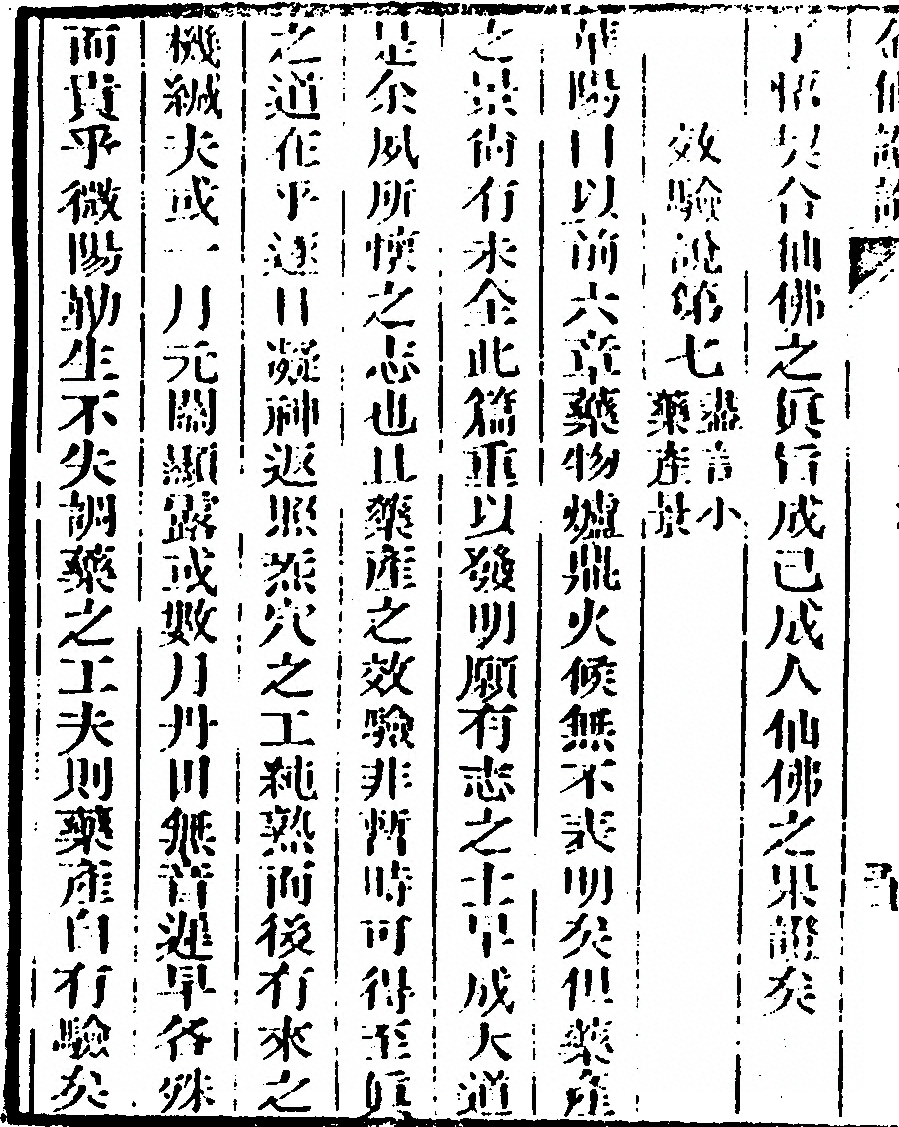 金仙證論
了悟契合仙佛之眞旨成已成人仙佛之果證矣
效驗說第七 盡言小藥產景
華陽曰以前六章藥物爐鼎火候無不表明矣但藥產
之景尙有未全此篇重以發明願有志之士早成大道
是余夙所懷之志也且藥產之效驗非暫時可得至眞
之道在乎逐日凝神返照炁穴之工純熟而後有來之
機緘夫或一月元關顯露或數月丹田無音遲早各殊
而貴乎微陽勤生不失調藥之工夫則藥產自有驗矣